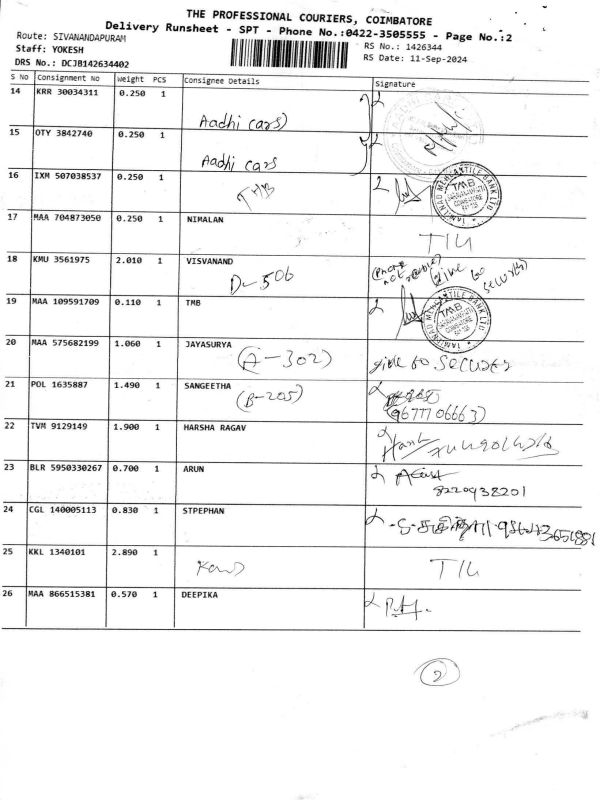 THE PROFESSIONAL COURIERS, COIMBATORE
Delivery Runsheet - SPT - Phone No.:0422-3505555 - Page No.:2
Route: SIVANANDAPURAM
Staff: YOKESH
DRS No.: DCJB142634402
RS No.: 1426344
RS Date: 11-Sep-2024
S No Consignment No Weight PCS Consignee Details Signature
14 KRR 30034311 0.250 1
Aadhi cars
15 OTY 3842740 0.250 1
Aadhi cars
16 IXM 507038537 0.250 1
TMB
TAMILNAD MERCANTILE BANK LTD
TMB
17 MAA 704873050 0.250 1 NIMALAN
18 KMU 3561975 2.010 1 VISVANAND
D-506
(Phone
give to
security
19 MAA 109591709 0.110 1 TMB
TAMILNAD MERCANTILE BANK LTD
TMB
20 MAA 575682199 1.060 1 JAYASURYA
(A-302)
give to security
21 POL 1635887 1.490 1 SANGEETHA
(B-205)
(9677706663)
22 TVM 9129149 1.900 1 HARSHA RAGAV
23 BLR 5950330267 0.700 1 ARUN
8220938201
24 CGL 140005113 0.830 1 STPEPHAN
25 KKL 1340101 2.890 1
26 MAA 866515381 0.570 1 DEEPIKA
2